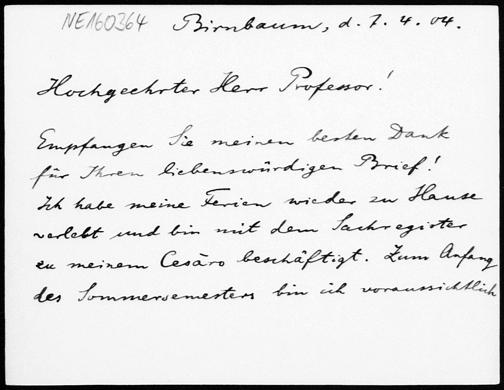 NE160364 Birnbaum, d. 7. 4. 04.
Hochgeehrter Herr Professor!
Empfangen Sie meinen besten Dank
für Ihren liebenswürdigen Brief!
Ich habe meine Ferien wieder zu Hause
verlebt und bin mit dem Sachregister
zu meinem Cesàro beschäftigt. Zum Anfang
des Sommersemesters bin ich voraussichtlich